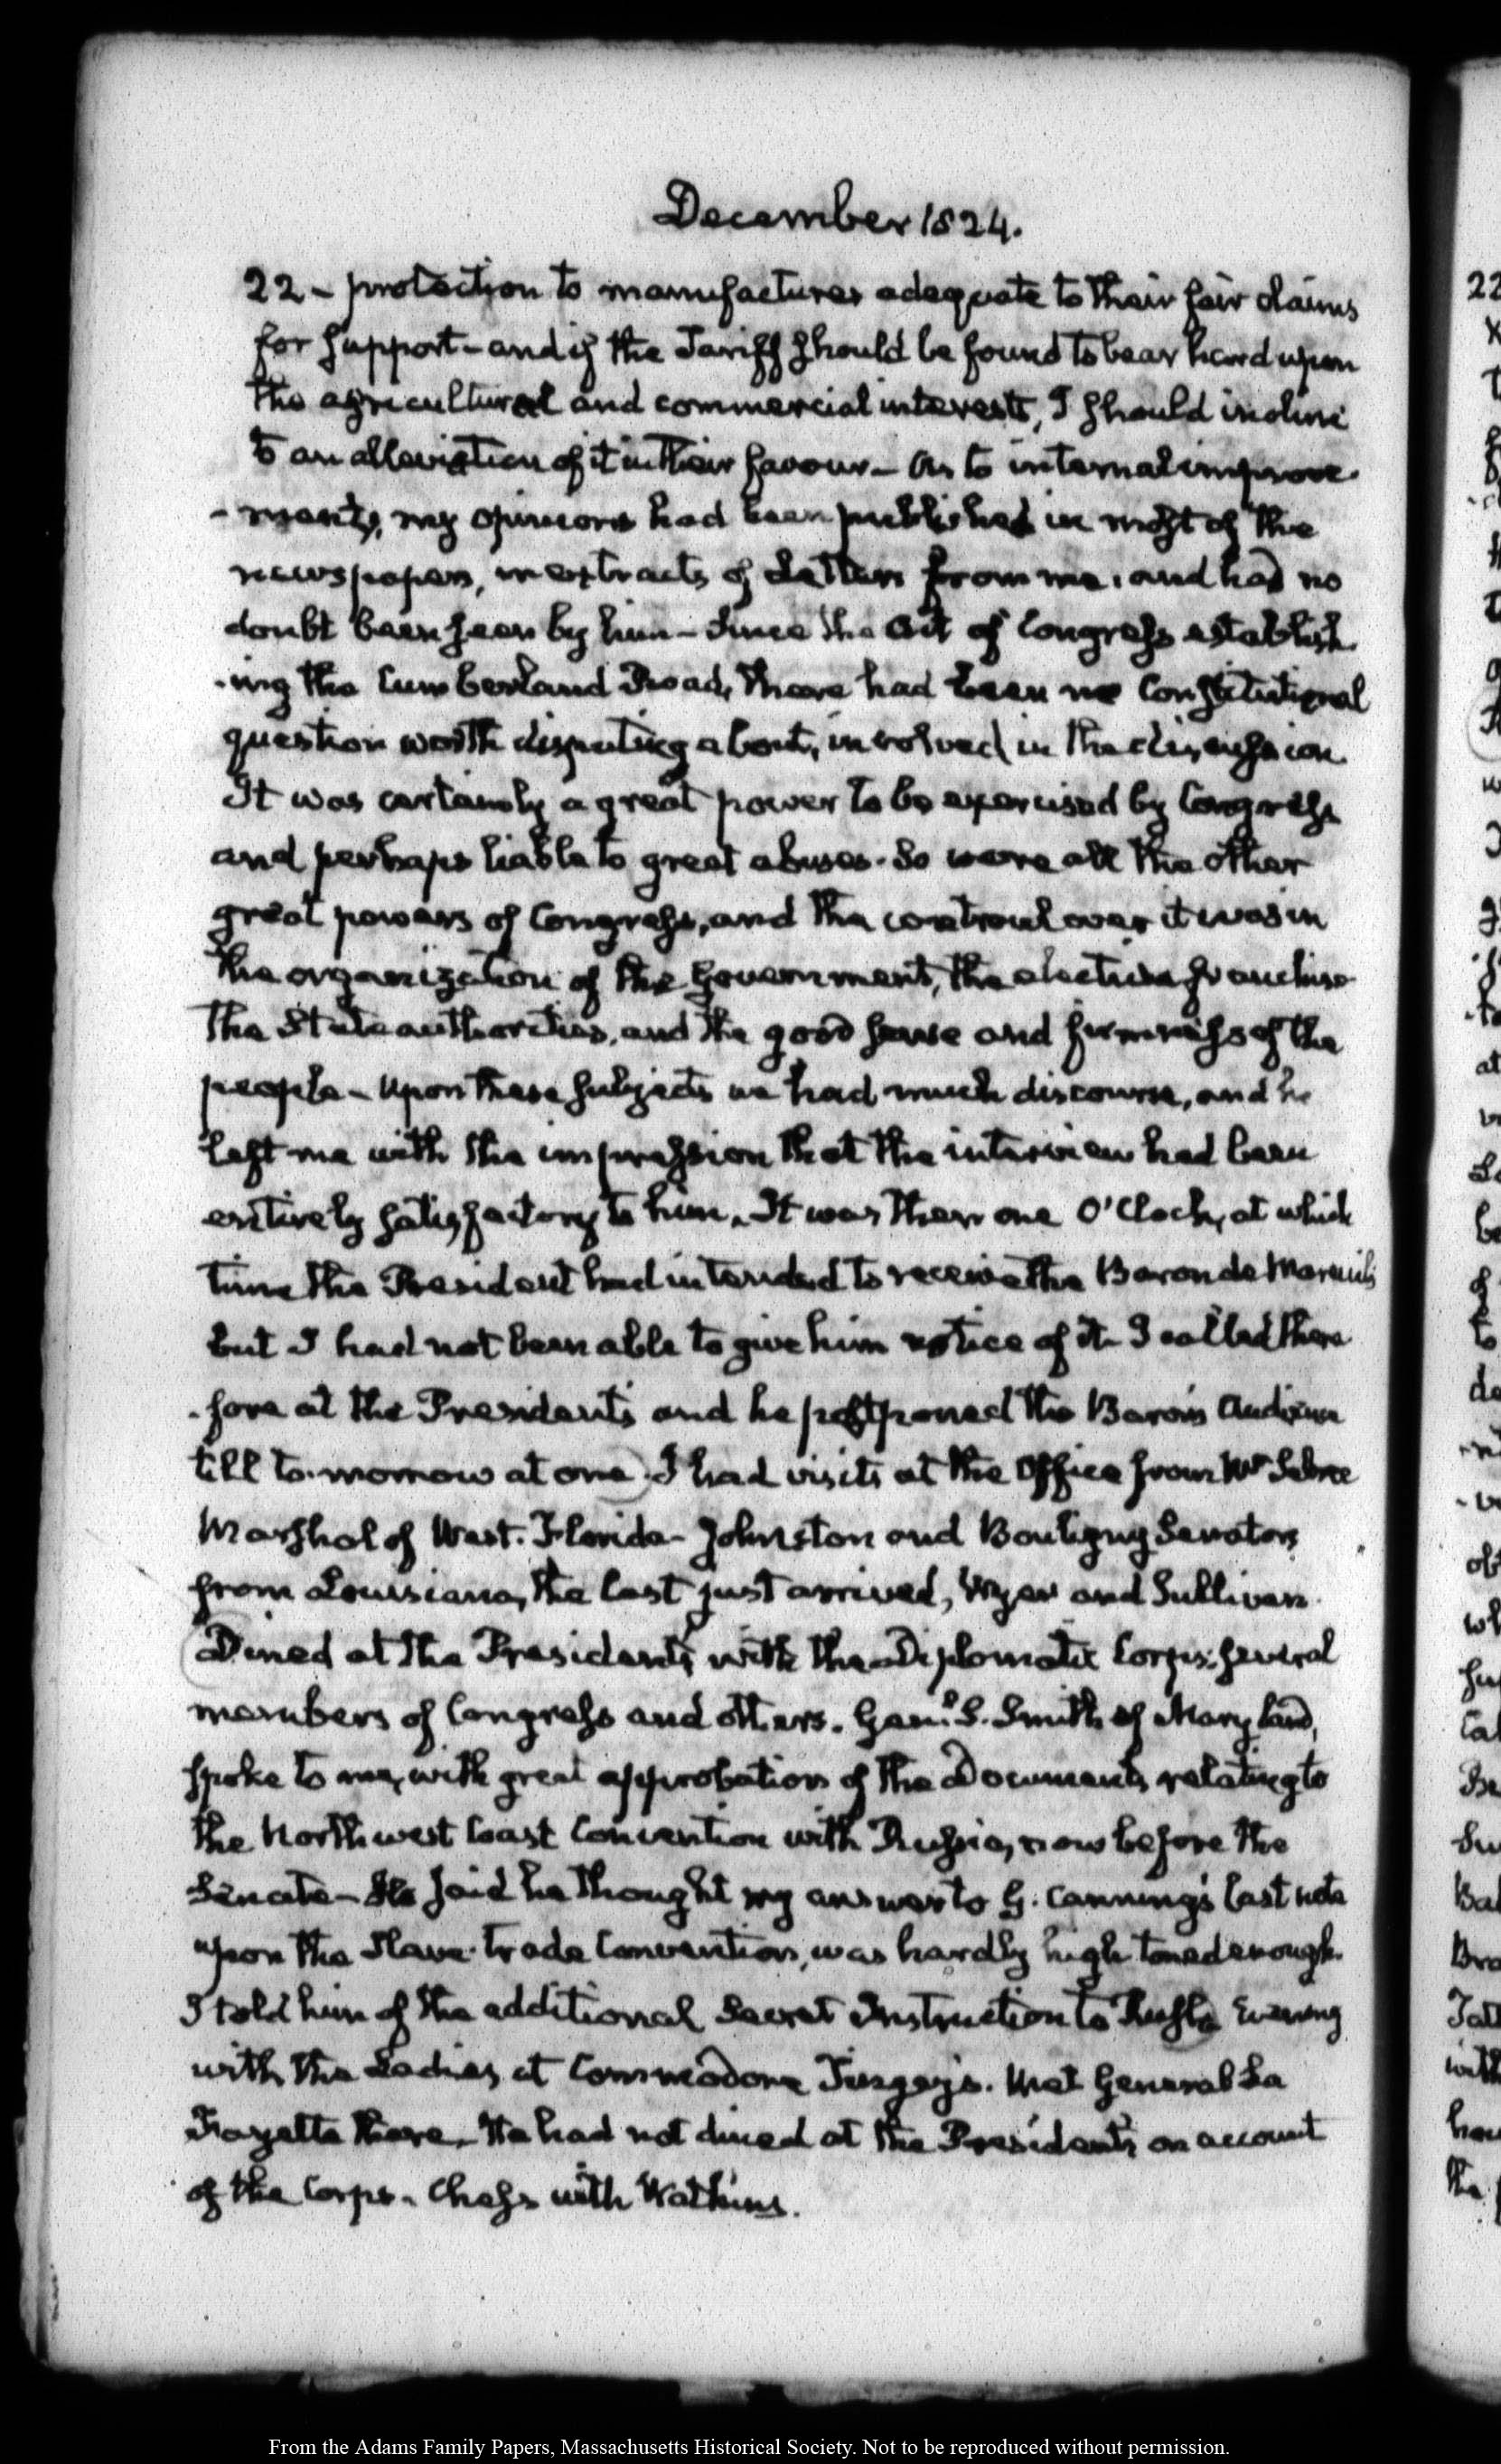 December 1824.
22 - protection to manufactures adequate to their fair claims
for support - and if the Tariff should be found to bear hard upon
the agricultural and commercial interests, I should incline
to an alleviation of it in their favour - As to internal improve-
-ments, my opinions had been published in most of the
newspapers, in extracts of Letters from me, and had no
doubt been seen by him - Since the Act of Congress establish-
-ing the Cumberland Road, there had been no Constitutional
question worth disputing about, involved in the discussion.
It was certainly a great power to be exercised by Congress
and perhaps liable to great abuses. So were all the other
great powers of Congress, and the controul over it was in
the organization of the Government, the elective franchise
the State authorities, and the good sense and firmness of the
people - Upon these subjects we had much discourse, and he
left me with the impression that the interview had been
entirely satisfactory to him. It was then one O'Clock, at which
time the President had intended to receive the Baron de Mareuil;
but I had not been able to give him notice of it. I called there-
-fore at the President's and he postponed the Baron's Audience
till to-morrow at one. I had visits at the Office from Mr Sebree
Marshal of West-Florida - Johnston and Bouligny Senators
from Louisiana, the last just arrived, Wyer and Sullivan.
Dined at the President's with the Diplomatic Corps, several
members of Congress and others. Genl. S. Smith of Maryland,
spoke to me, with great approbation of the Documents relating to
the Northwest Coast Convention with Russia, now before the
Senate - He said he thought my answer to G. Canning's last note
upon the Slave-trade Convention, was hardly high toned enough.
I told him of the additional Secret Instruction to Rush. Evening
with the Ladies at Commodore Tingey's. Met General La
Fayette there. He had not dined at the President's on account
of the Corps. Chess with Watkins.
22
From the Adams Family Papers, Massachusetts Historical Society. Not to be reproduced without permission.